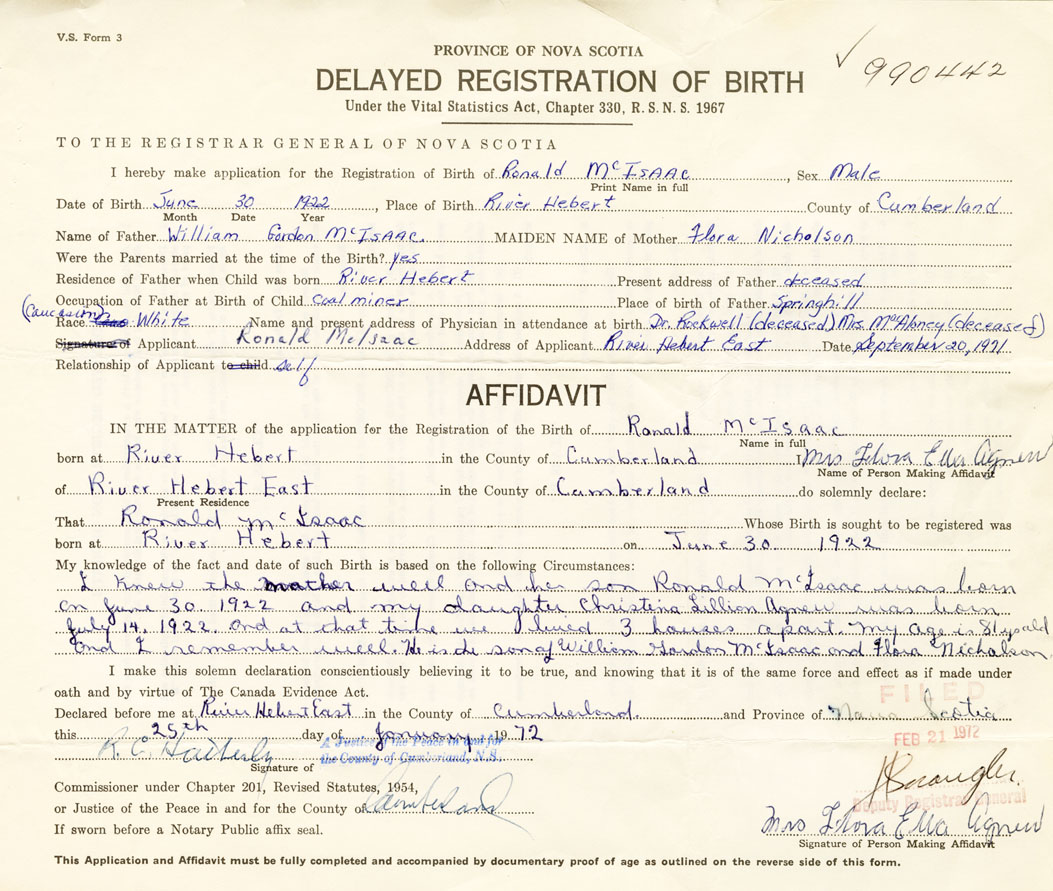 V.S. Form 3
PROVINCE OF NOVA SCOTIA
✓ 990442
DELAYED REGISTRATION OF BIRTH
Under the Vital Statistics Act, Chapter 330, R.S.N.S. 1967
TO THE REGISTRAR GENERAL OF NOVA SCOTIA
I hereby make application for the Registration of Birth of Ronald McIsaac, Sex Male
Print Name in full
Date of Birth June 30 1922, Place of Birth River Hebert County of Cumberland
Month Date Year
Name of Father William Gordon McIsaac. MAIDEN NAME of Mother Flora Nicholson
Were the Parents married at the time of the Birth? yes
Residence of Father when Child was born River Hebert Present address of Father deceased
Occupation of Father at Birth of Child coal miner Place of birth of Father Springhill
(Caucasion)
Race White Name and present address of Physician in attendance at birth Dr. Rockwell (deceased) Mrs. (deceased)
Signature of Applicant Ronald McIsaac Address of Applicant River Hebert East Date September 20, 1971
Relationship of Applicant to child self
AFFIDAVIT
IN THE MATTER of the application for the Registration of the Birth of Ronald McIsaac
Name in full
born at River Hebert in the County of Cumberland I Mrs Flora Ella Agnew
Name of Person Making Affidavit
of River Hebert East in the County of Cumberland do solemnly declare:
Present Residence
That Ronald McIsaac Whose Birth is sought to be registered was
born at River Hebert on June 30 1922
My knowledge of the fact and date of such Birth is based on the following Circumstances:
I knew the mother well and her son Ronald McIsaac was born
on June 30, 1922 and my daughter Christina Lillion Agnew was born
July 14, 1922. And at that time we lived 3 houses apart. My age is 81 ys old
and I remember well. He is de son of William Gordon McIsaac and Flora Nicholson
I make this solemn declaration conscientiously believing it to be true, and knowing that it is of the same force and effect as if made under
oath and by virtue of The Canada Evidence Act.
FILED
Declared before me at River Hebert East in the County of Cumberland. and Province of Nova Scotia
this 25th day of January 1972
FEB 21 1972
R. C. A Justice of the Peace in and for
the County of Cumberland, N.S.
Signature of
Commissioner under Chapter 201, Revised Statutes, 1954,
Deputy Registrar General
or Justice of the Peace in and for the County of Cumberland
Mrs Flora Ella Agnew
If sworn before a Notary Public affix seal.
Signature of Person Making Affidavit
This Application and Affidavit must be fully completed and accompanied by documentary proof of age as outlined on the reverse side of this form.